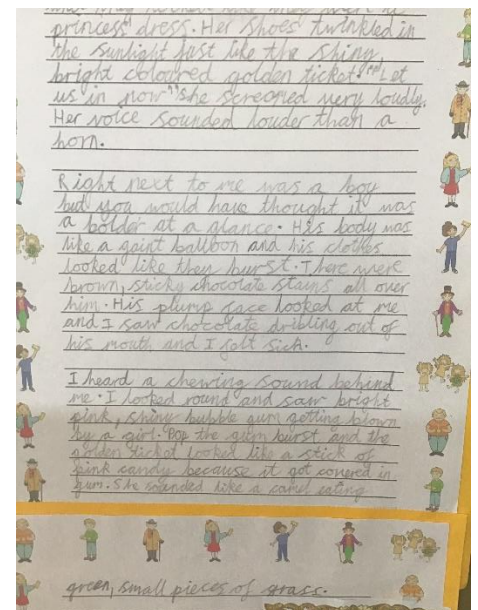 princess" dress. Her shoes twinkled in
the sunlight just like the shiny,
bright coloured golden ticket. "Let
us in now" she screamed very loudly.
Her voice sounded louder than a
horn.
Right next to me was a boy
but you would have thought it was
a bolder at a glance. His body was
like a gaint balloon and his clothes
looked like then burst. There were
brown, sticky chocolate stains all over
him. His plump face looked at me
and I saw chocolate dribling out of
his mouth and I felt sick.
I heard a chewing sound behind
me. I looked round and saw bright
pink, shiny bubble gum getting blown
by a girl. Pop the gum burst and the
golden ticket looked like a stick of
pink candy because it got covered in
gum. She sounded like a camel eating
green, small pieces of grass.